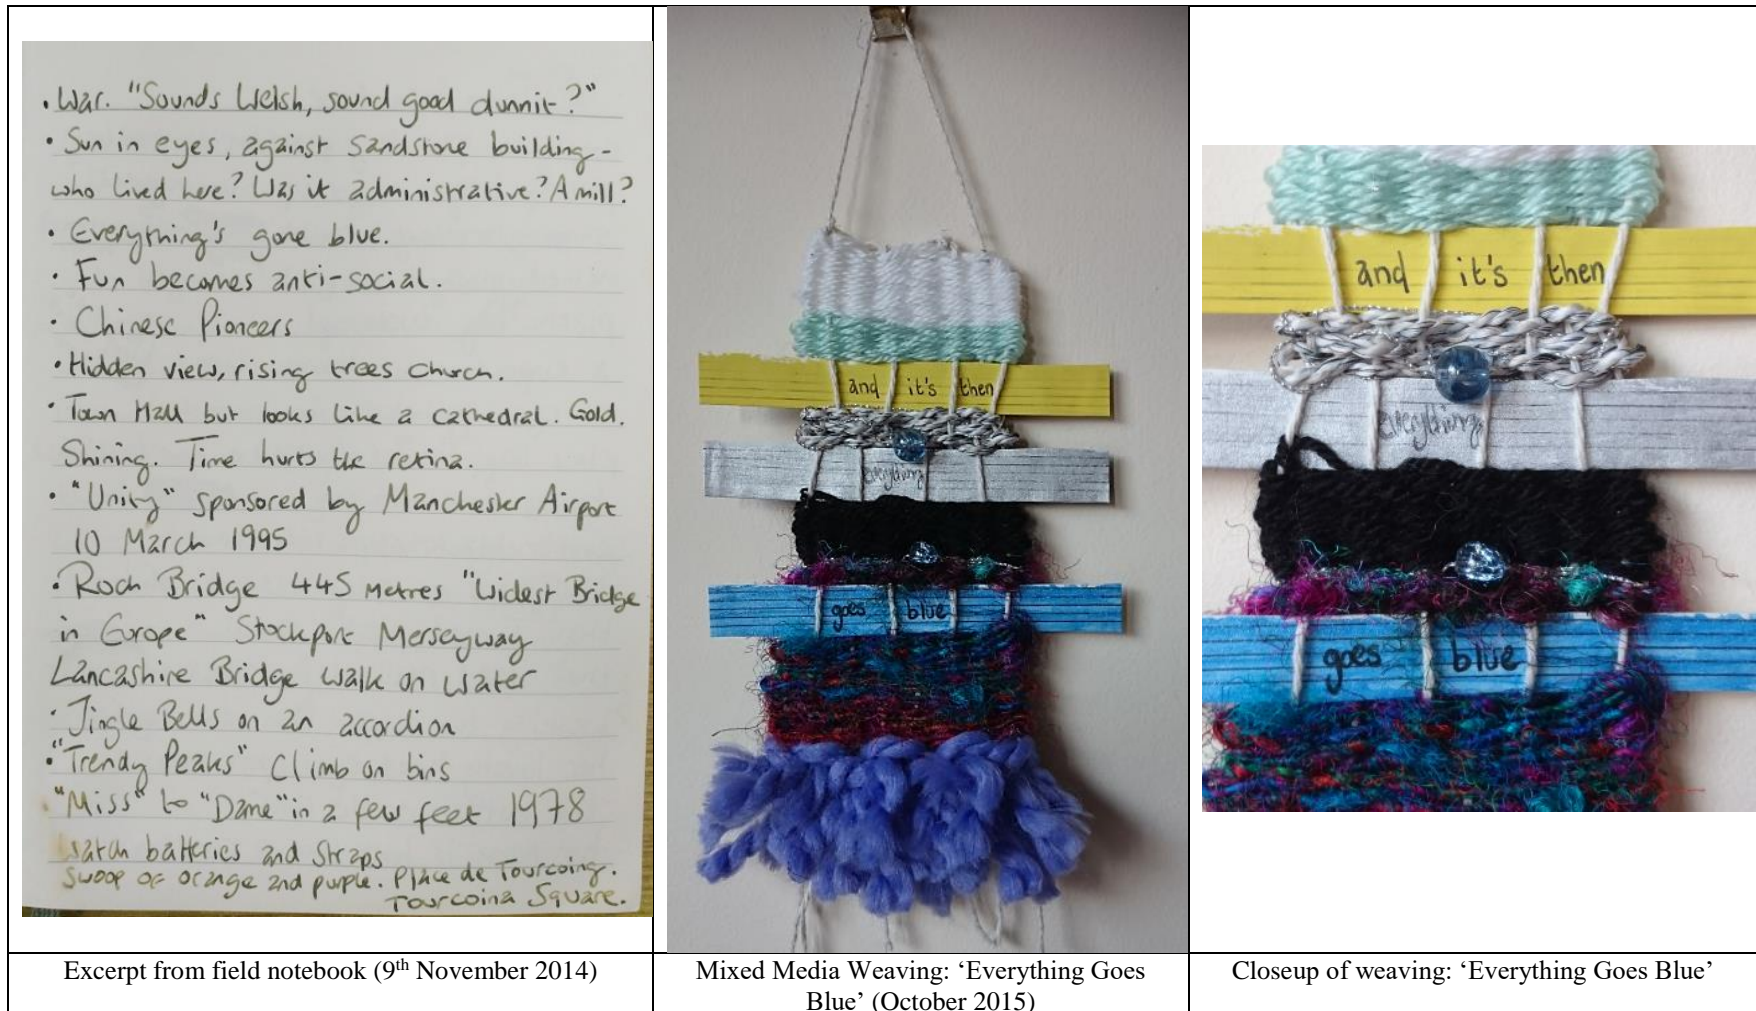 • War. "Sounds Welsh, sound good dunnit?"
• Sun in eyes, against sandstone building -
who lived here? Was it administrative? A mill?
• Everything's gone blue.
• Fun becomes anti-social.
• Chinese Pioneers
• Hidden view, rising trees church.
• Town Hall but looks like a cathedral. Gold.
Shining. Time hurts the retina.
• "Unity" sponsored by Manchester Airport
10 March 1995
• Roch Bridge 445 metres "Widest Bridge
in Europe" Stockport Merseyway
Lancashire Bridge walk on water
• Jingle Bells on an accordion
• "Trendy Peaks" Climb on bins
"Miss" to "Dame" in a few feet 1978
watch batteries and straps
swoop of orange and purple. Place de Tourcoing.
Tourcoing Square.
Excerpt from field notebook (9th November 2014)
and it's then
everything
goes blue
Mixed Media Weaving: ‘Everything Goes
Blue’ (October 2015)
and it's then
everything
goes blue
Closeup of weaving: ‘Everything Goes Blue’